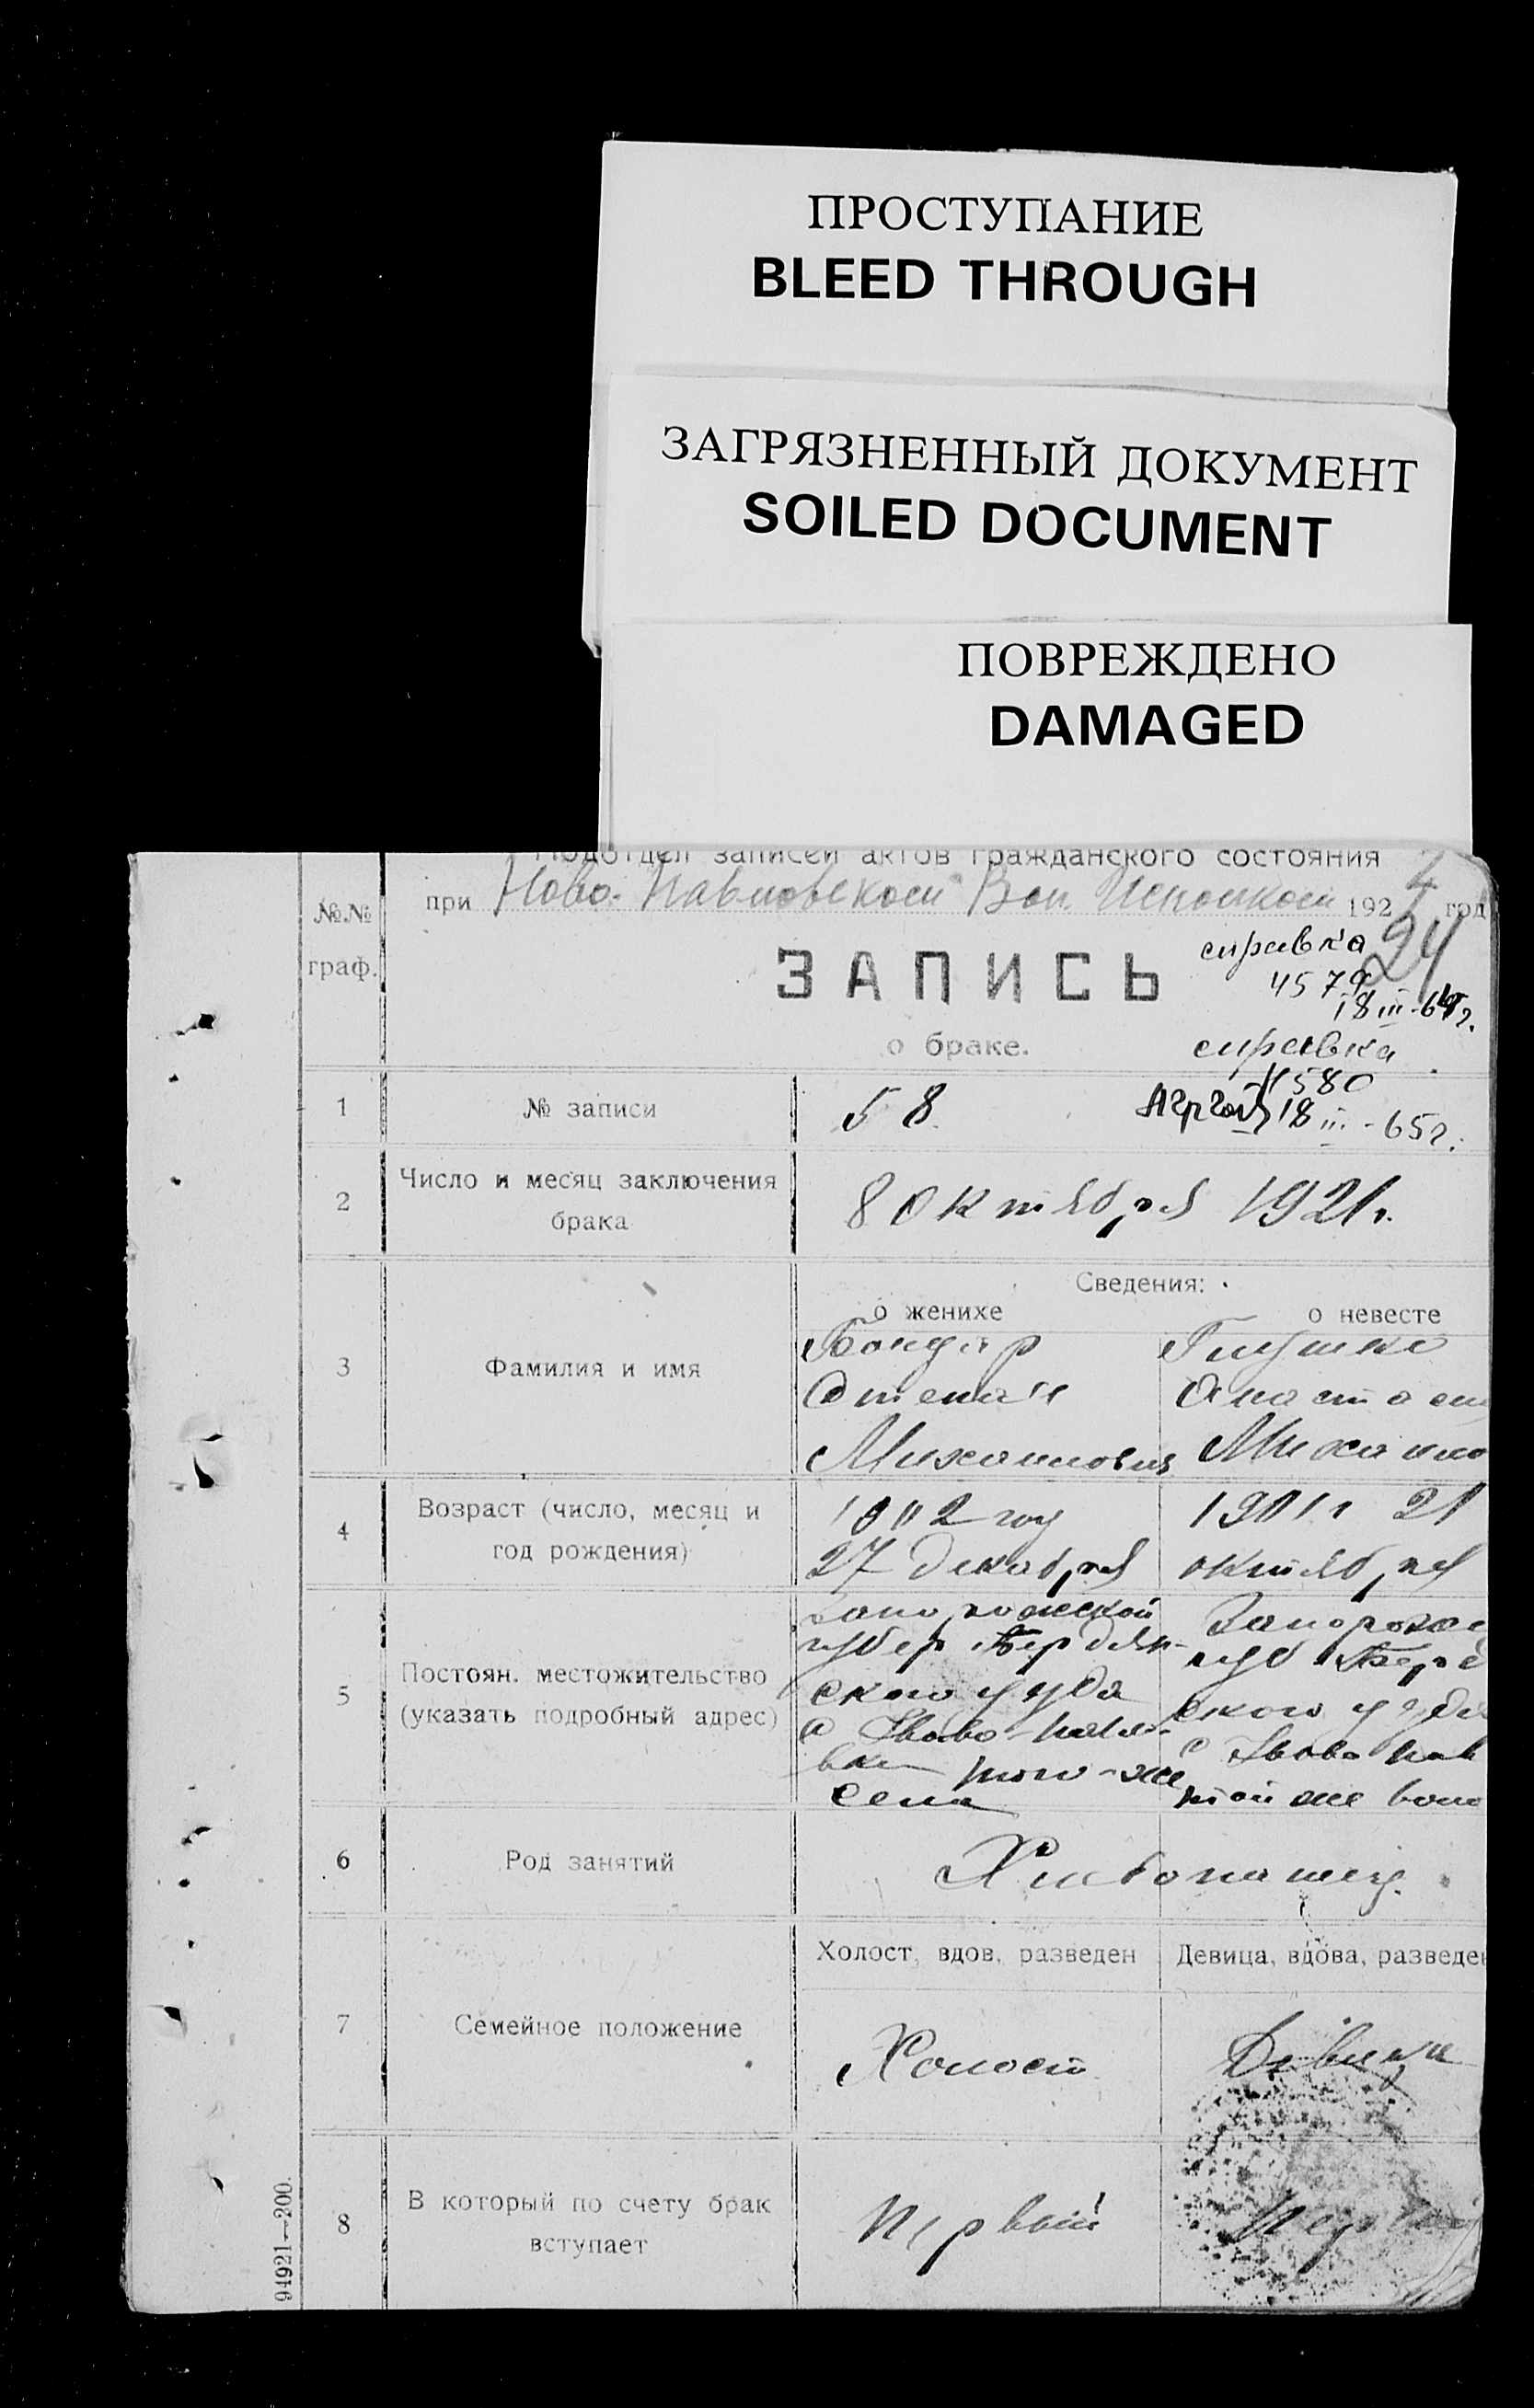 ПРОСТУПАНИЕ
BLEED THROUGH
ЗАГРЯЗНЕННЫЙ ДОКУМЕНТ
SOILED DOCUMENT
ПОВРЕЖДЕНО
DAMAGED
Подотдел записей актов гражданского состояния
№№ граф.
при Ново-Павловском Вол. Исполком 192 год
24
ЗАПИСЬ
справка
4579
18 III-65г.
о браке.
справка
4580
18 III-65г.
1 № записи 58
2 Число и месяц заключения
брака
8 октября 1921г.
Сведения:
о женихе о невесте
3 Фамилия и имя
Бондар Глушко
Степан Анастаси
Михайлович Михайло
4 Возраст (число, месяц и
год рождения)
1902 год 1901г 21
27 декабря октября
5 Постоян. местожительство
(указать подробный адрес)
Запорожской Запорожс
губер Бердян- губ Берд
ского уезда ского уезда
с Ново-Павло- с Ново Пав
вки того-же той же воло
села
6 Род занятий Хлебопашец.
Холост, вдов, разведен Девица, вдова, разведен
7 Семейное положение
Холост Девица
8 В который по счету брак
вступает
Первый Первый
94921—200.